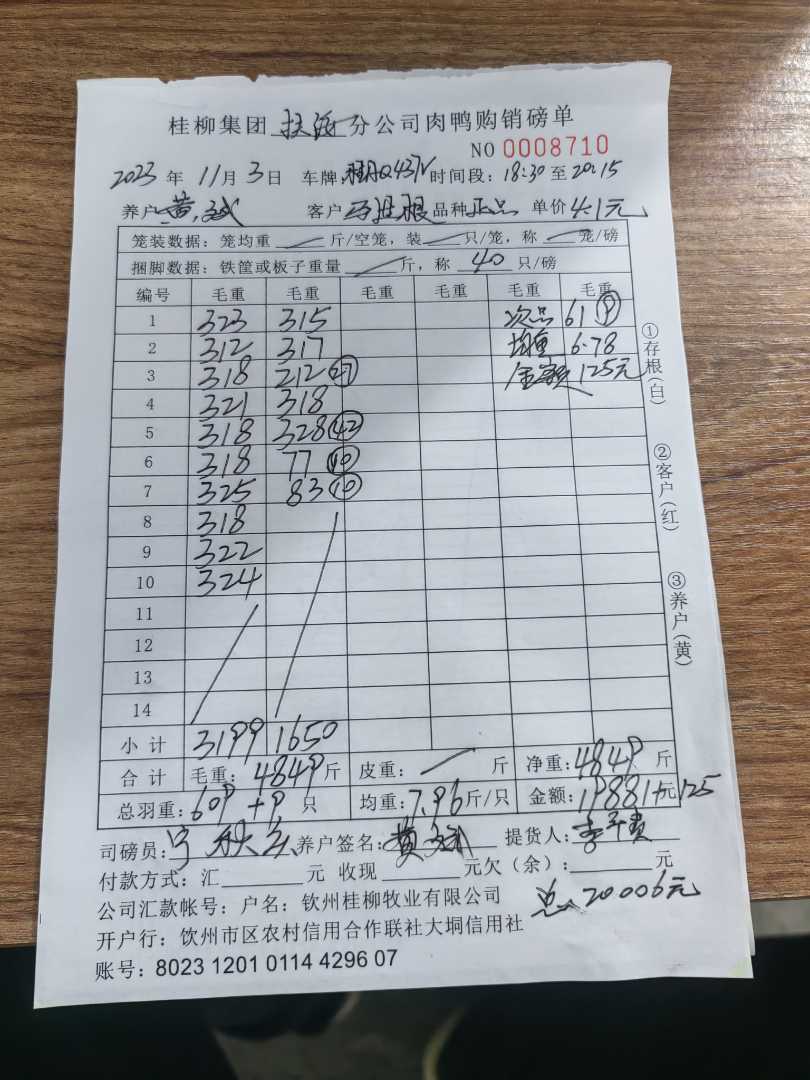 桂柳集团 扶绥 分公司肉鸭购销磅单
NO 0008710
2023 年 11月 3日 车牌: 时间段: 18:30 至 20:15
养户 黄 斌 客户 根 品种 正品 单价 4.1元
笼装数据: 笼均重 / 斤/空笼, 装 / 只/笼, 称 / 笼/磅
捆脚数据: 铁筐或板子重量 / 斤, 称 40 只/磅
编号 毛重 毛重 毛重 毛重 毛重 毛重
1 323 315 次品 61 ⑨
2 312 317 均重 6.78
3 318 212 ㉗ 金额 125元
4 321 318
5 318 328 ㊷
6 318 77 ⑩
7 325 83 ⑩
8 318
9 322
10 324
11
12
13
14
小计 3199 1650
合计 毛重: 4849斤 皮重: / 斤 净重: 4849 斤
总羽重: 609 +9 只 均重: 7.96 斤/只 金额: 19881元+125
司磅员: 养户签名: 黄 斌 提货人: 李 贵
付款方式: 汇 元 收现 元欠(余): 元
公司汇款帐号: 户名: 钦州桂柳牧业有限公司
总 20006元
开户行: 钦州市区农村信用合作联社大垌信用社
账号: 8023 1201 0114 4296 07
①存根(白)
②客户(红)
③养户(黄)